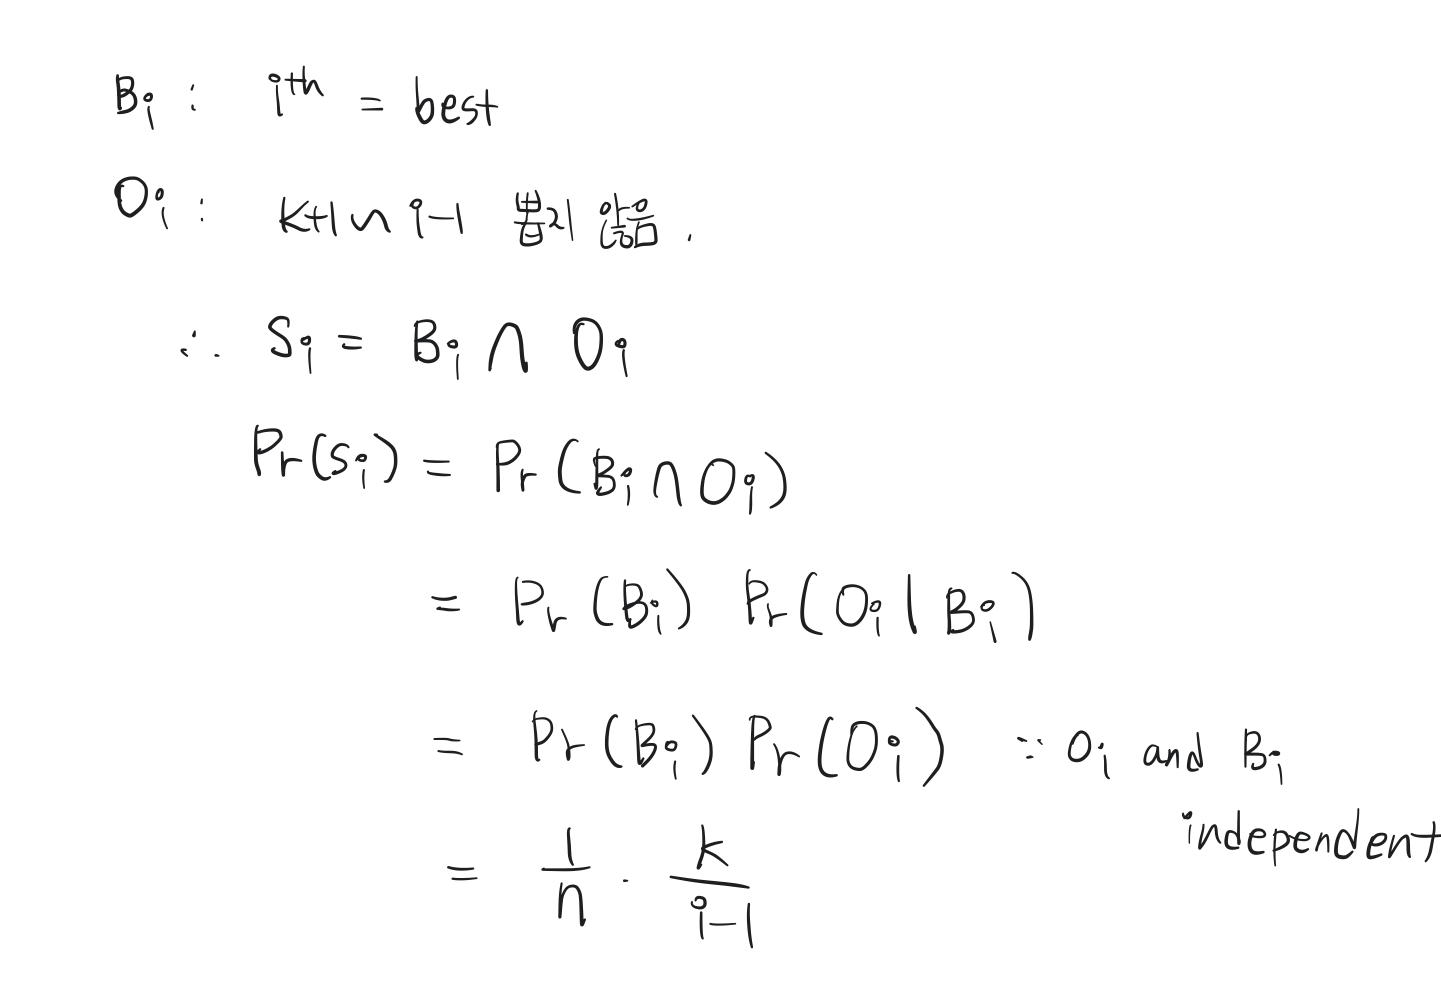 Bi : i^th = best
Oi : k+1 ~ i-1 뽑지 않음.
∴ Si = Bi ∩ Oi
Pr(Si) = Pr(Bi ∩ Oi)
= Pr(Bi) Pr(Oi | Bi)
= Pr(Bi) Pr(Oi) ∵ Oi and Bi
independent
= 1/n · k/(i-1)